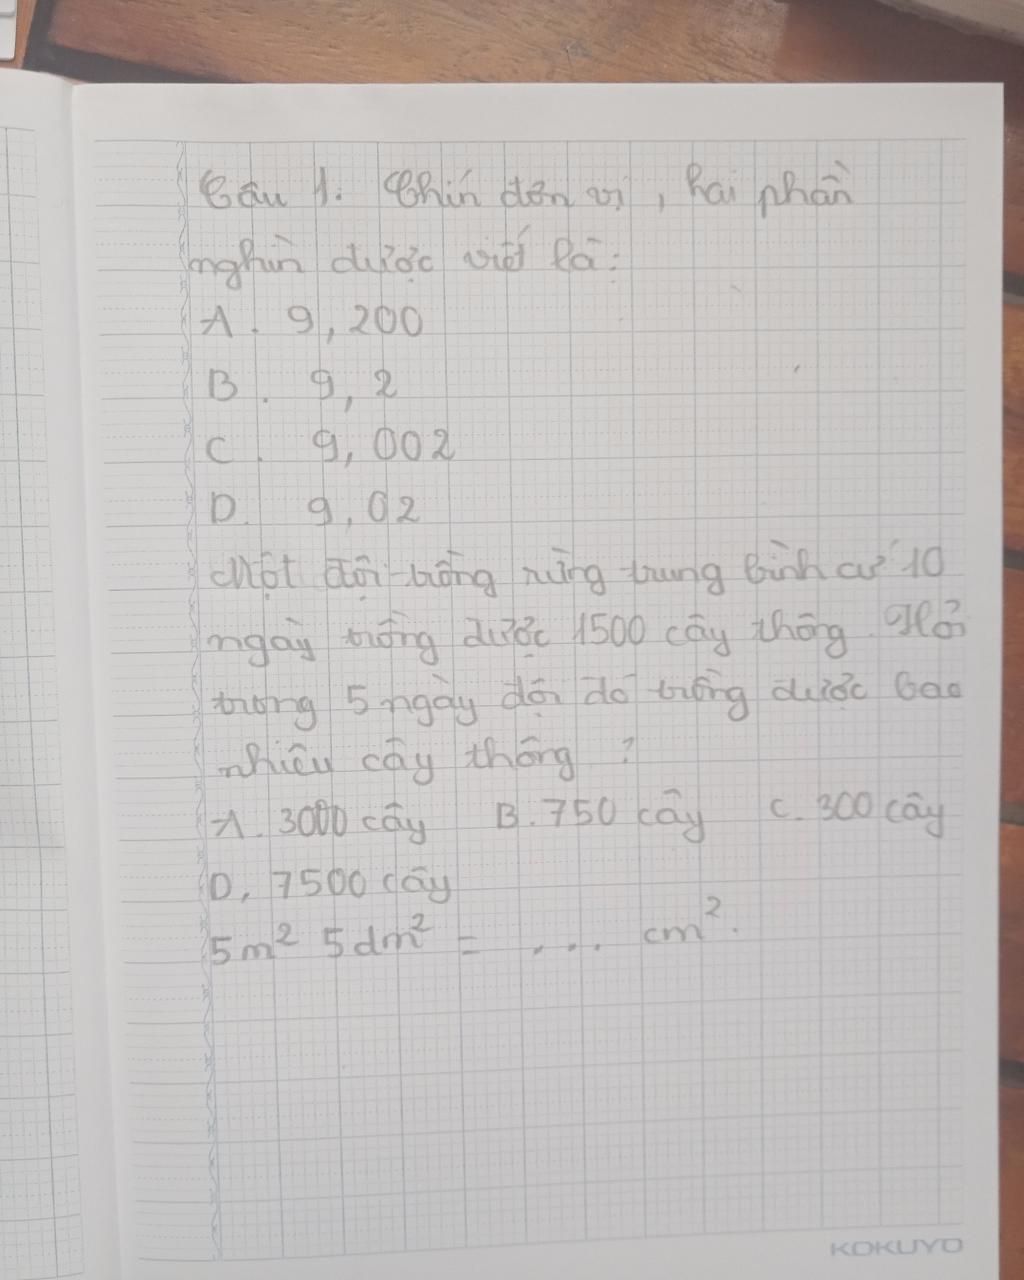 Câu 1. Chín đơn vị, hai phần
nghìn được viết là:
A. 9,200
B. 9,2
C. 9,002
D. 9,02
Một đội trồng rừng trung bình cứ 10
ngày trồng được 1500 cây thông. Hỏi
trong 5 ngày đội đó trồng được bao
nhiêu cây thông ?
A. 3000 cây B. 750 cây C. 300 cây
D. 7500 cây
5m² 5dm² = ... cm².
KOKUYO